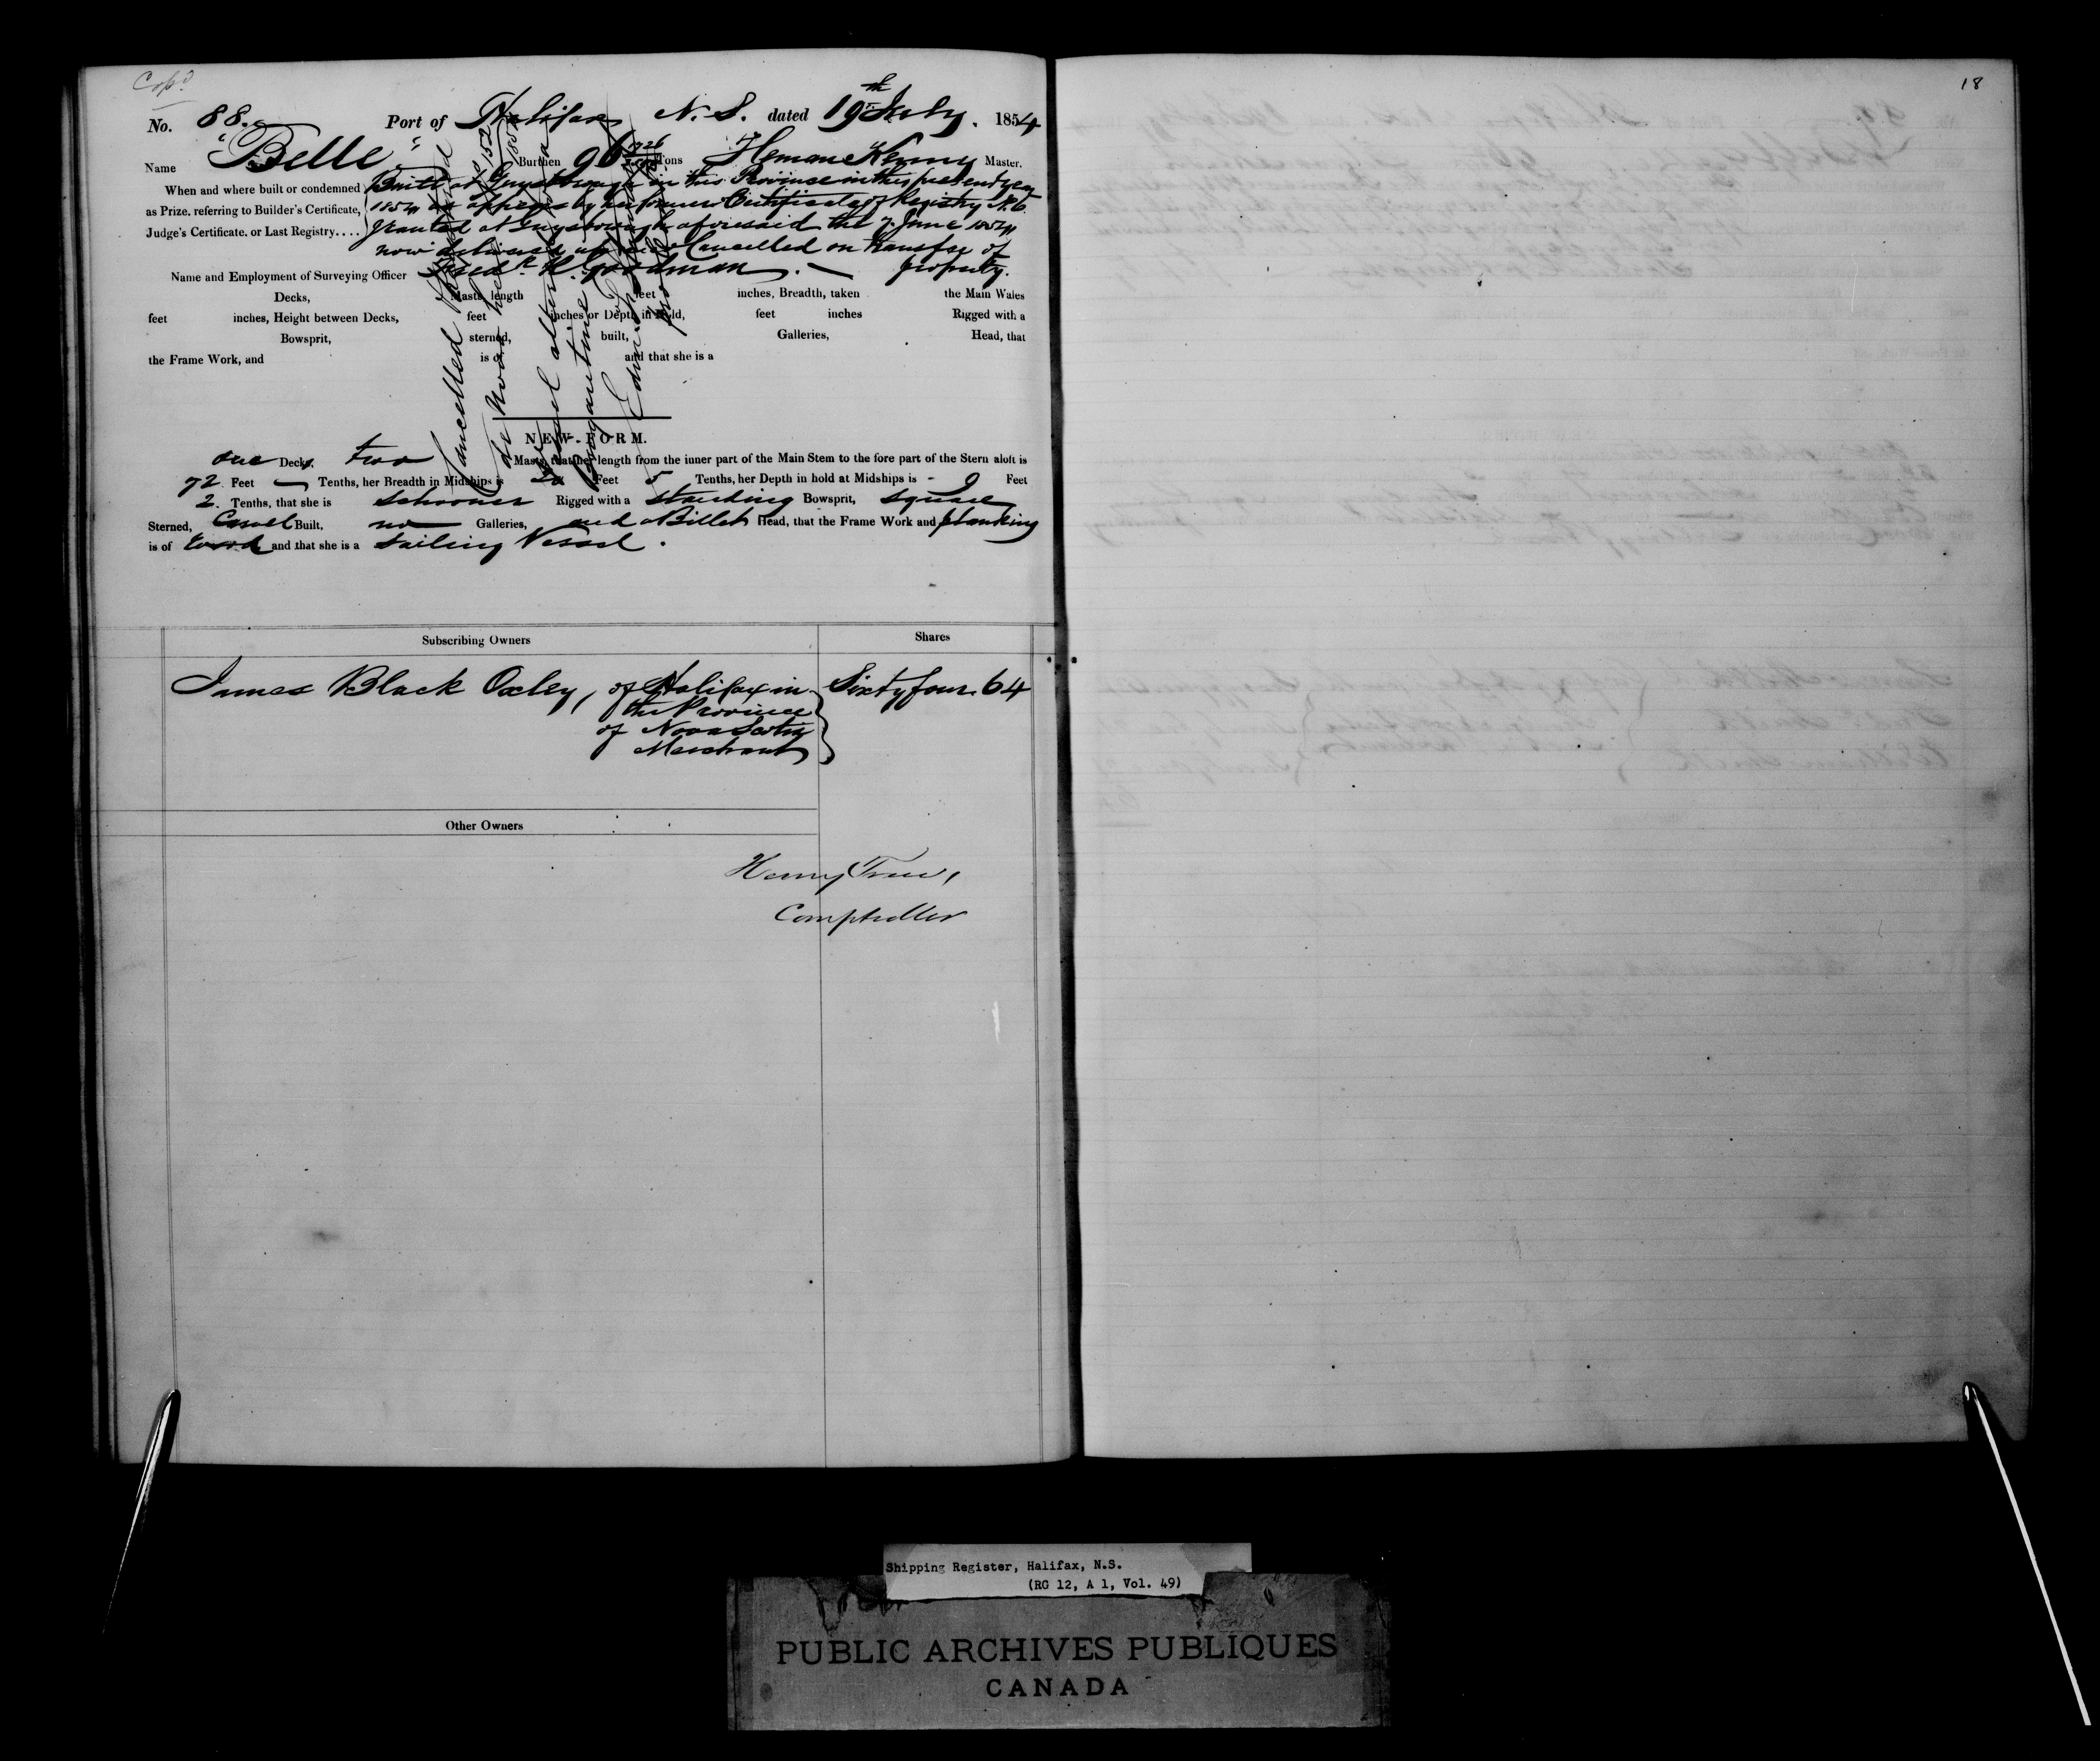 Cop^d
18
No. 88. Port of Halifax N.S. dated 19th July. 1854
Name "Belle" Burthen 96 Tons Heman Kenny Master.
When and where built or condemned Built at Guysborough in this Province in this present year
as Prize, referring to Builder's Certificate, 1854 as appears by her former Certificate of Registry No. 6
Judge's Certificate, or Last Registry.... granted at Guysborough aforesaid the 7 June 1854
now delivered up and Cancelled on transfer of
property.
Name and Employment of Surveying Officer Fred^k H. Goodman.
Decks, Masts, length feet inches, Breadth, taken the Main Wales
feet inches, Height between Decks, feet inches or Depth in Hold, feet inches Rigged with a
Bowsprit, sterned, built, Galleries, Head, that
the Frame Work, and is of and that she is a
Cancelled
de novo
vessel altered a
Brigantine
NEW FORM.
one Decks, two Masts, that her length from the inner part of the Main Stem to the fore part of the Stern aloft is
72 Feet — Tenths, her Breadth in Midships is 20 Feet 5 Tenths, her Depth in hold at Midships is 9 Feet
2. Tenths, that she is schooner Rigged with a standing Bowsprit, square
Sterned, Carvel Built, no Galleries, and a Billet Head, that the Frame Work and planking
is of Wood and that she is a sailing Vessel.
Subscribing Owners Shares
James Black Oxley, of Halifax in Sixty four. 64
the Province
of Nova Scotia
Merchant
Other Owners
Henry Trew,
Comptroller
Shipping Register, Halifax, N.S.
(RG 12, A 1, Vol. 49)
PUBLIC ARCHIVES PUBLIQUES
CANADA